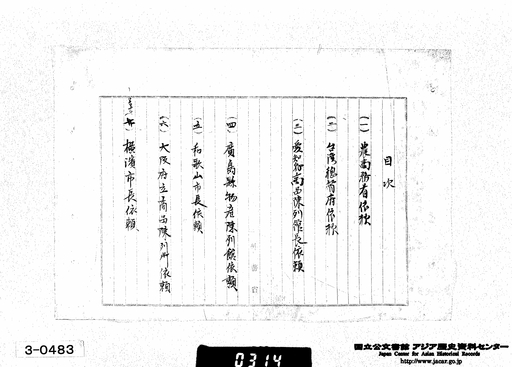 目次
(一) 農商務省依頼
(二) 台湾総督府依頼
(三) 愛知縣商品陳列館長依頼
(四) 廣島縣物産陳列館依頼
(五) 和歌山市長依頼
(六) 大阪府立商品陳列所依頼
横濱市長依頼
3-0483
0314
国立公文書館 アジア歴史資料センター
Japan Center for Asian Historical Records
http://www.jacar.go.jp